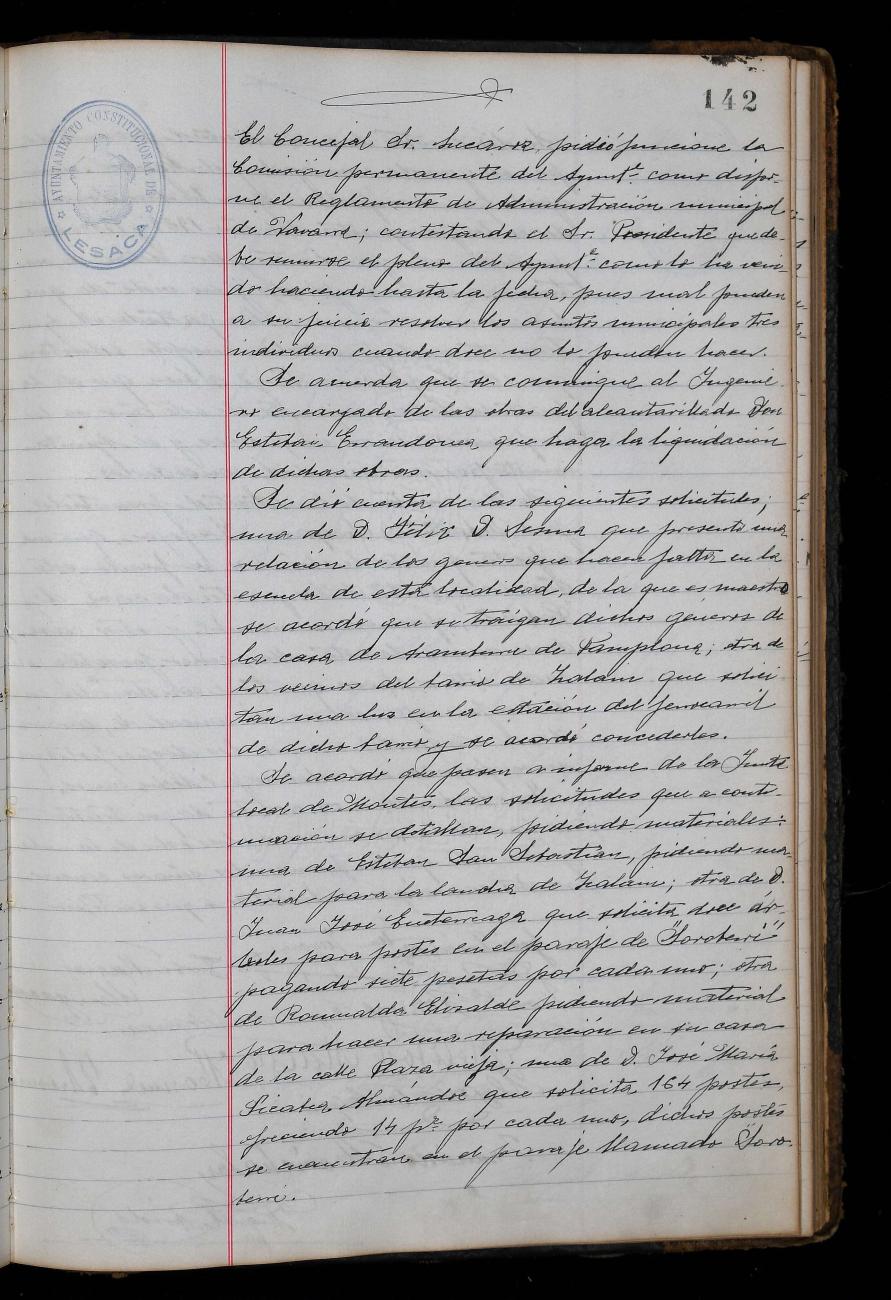 142
AYUNTAMIENTO CONSTITUCIONAL DE
LESACA
El Concejal Sr. pidió funcione la
Comisión permanente del Aymtº. como dispo-
ne el Reglamento de Administración municipal
de Navarra; contestando el Sr. Presidente que de-
be reunirse el pleno del Aymtº. como lo ha veni
do haciendo hasta la fecha, pues mal pueden
a su juicio resolver los asuntos municipales tres
individuos cuando doce no lo pueden hacer.
Se acuerda que se comunique al Ingenie
ro encargado de las obras del alcantarillado Don
Esteban Errandonea, que haga la liquidación
de dichas obras.
Se dió cuenta de las siguientes solicitudes;
una de D. Félix D. Sesma que presenta una
relación de los generos que hacen falta en la
escuela de esta localidad, de la que es maestro
se acordó que se traigan dichos géneros de
la casa de Aramburu de Pamplona; otra de
los vecinos del barrio de Zalain que solici
tan una luz en la estación del ferrocarril
de dicho barrio y se acordó concederles.
Se acordó que pasen a informe de la Junta
local de Montes, las solicitudes que a conti-
nuación se detallan, pidiendo materiales:
una de Esteban San Sebastian, pidiendo ma-
terial para la lancha de Zalain; otra de D.
Juan José que solicita doce ár-
boles para postes en el paraje de "Soroberri"
pagando siete pesetas por cada uno; otra
de Romualda Elizalde pidiendo material
para hacer una reparación en su casa
de la calle Plaza vieja; una de D. José María
Picabea Almándoz que solicita 164 postes,
ofreciendo 14 pts por cada uno, dichos postes
se encuentran en el paraje llamado Soro-
berri.